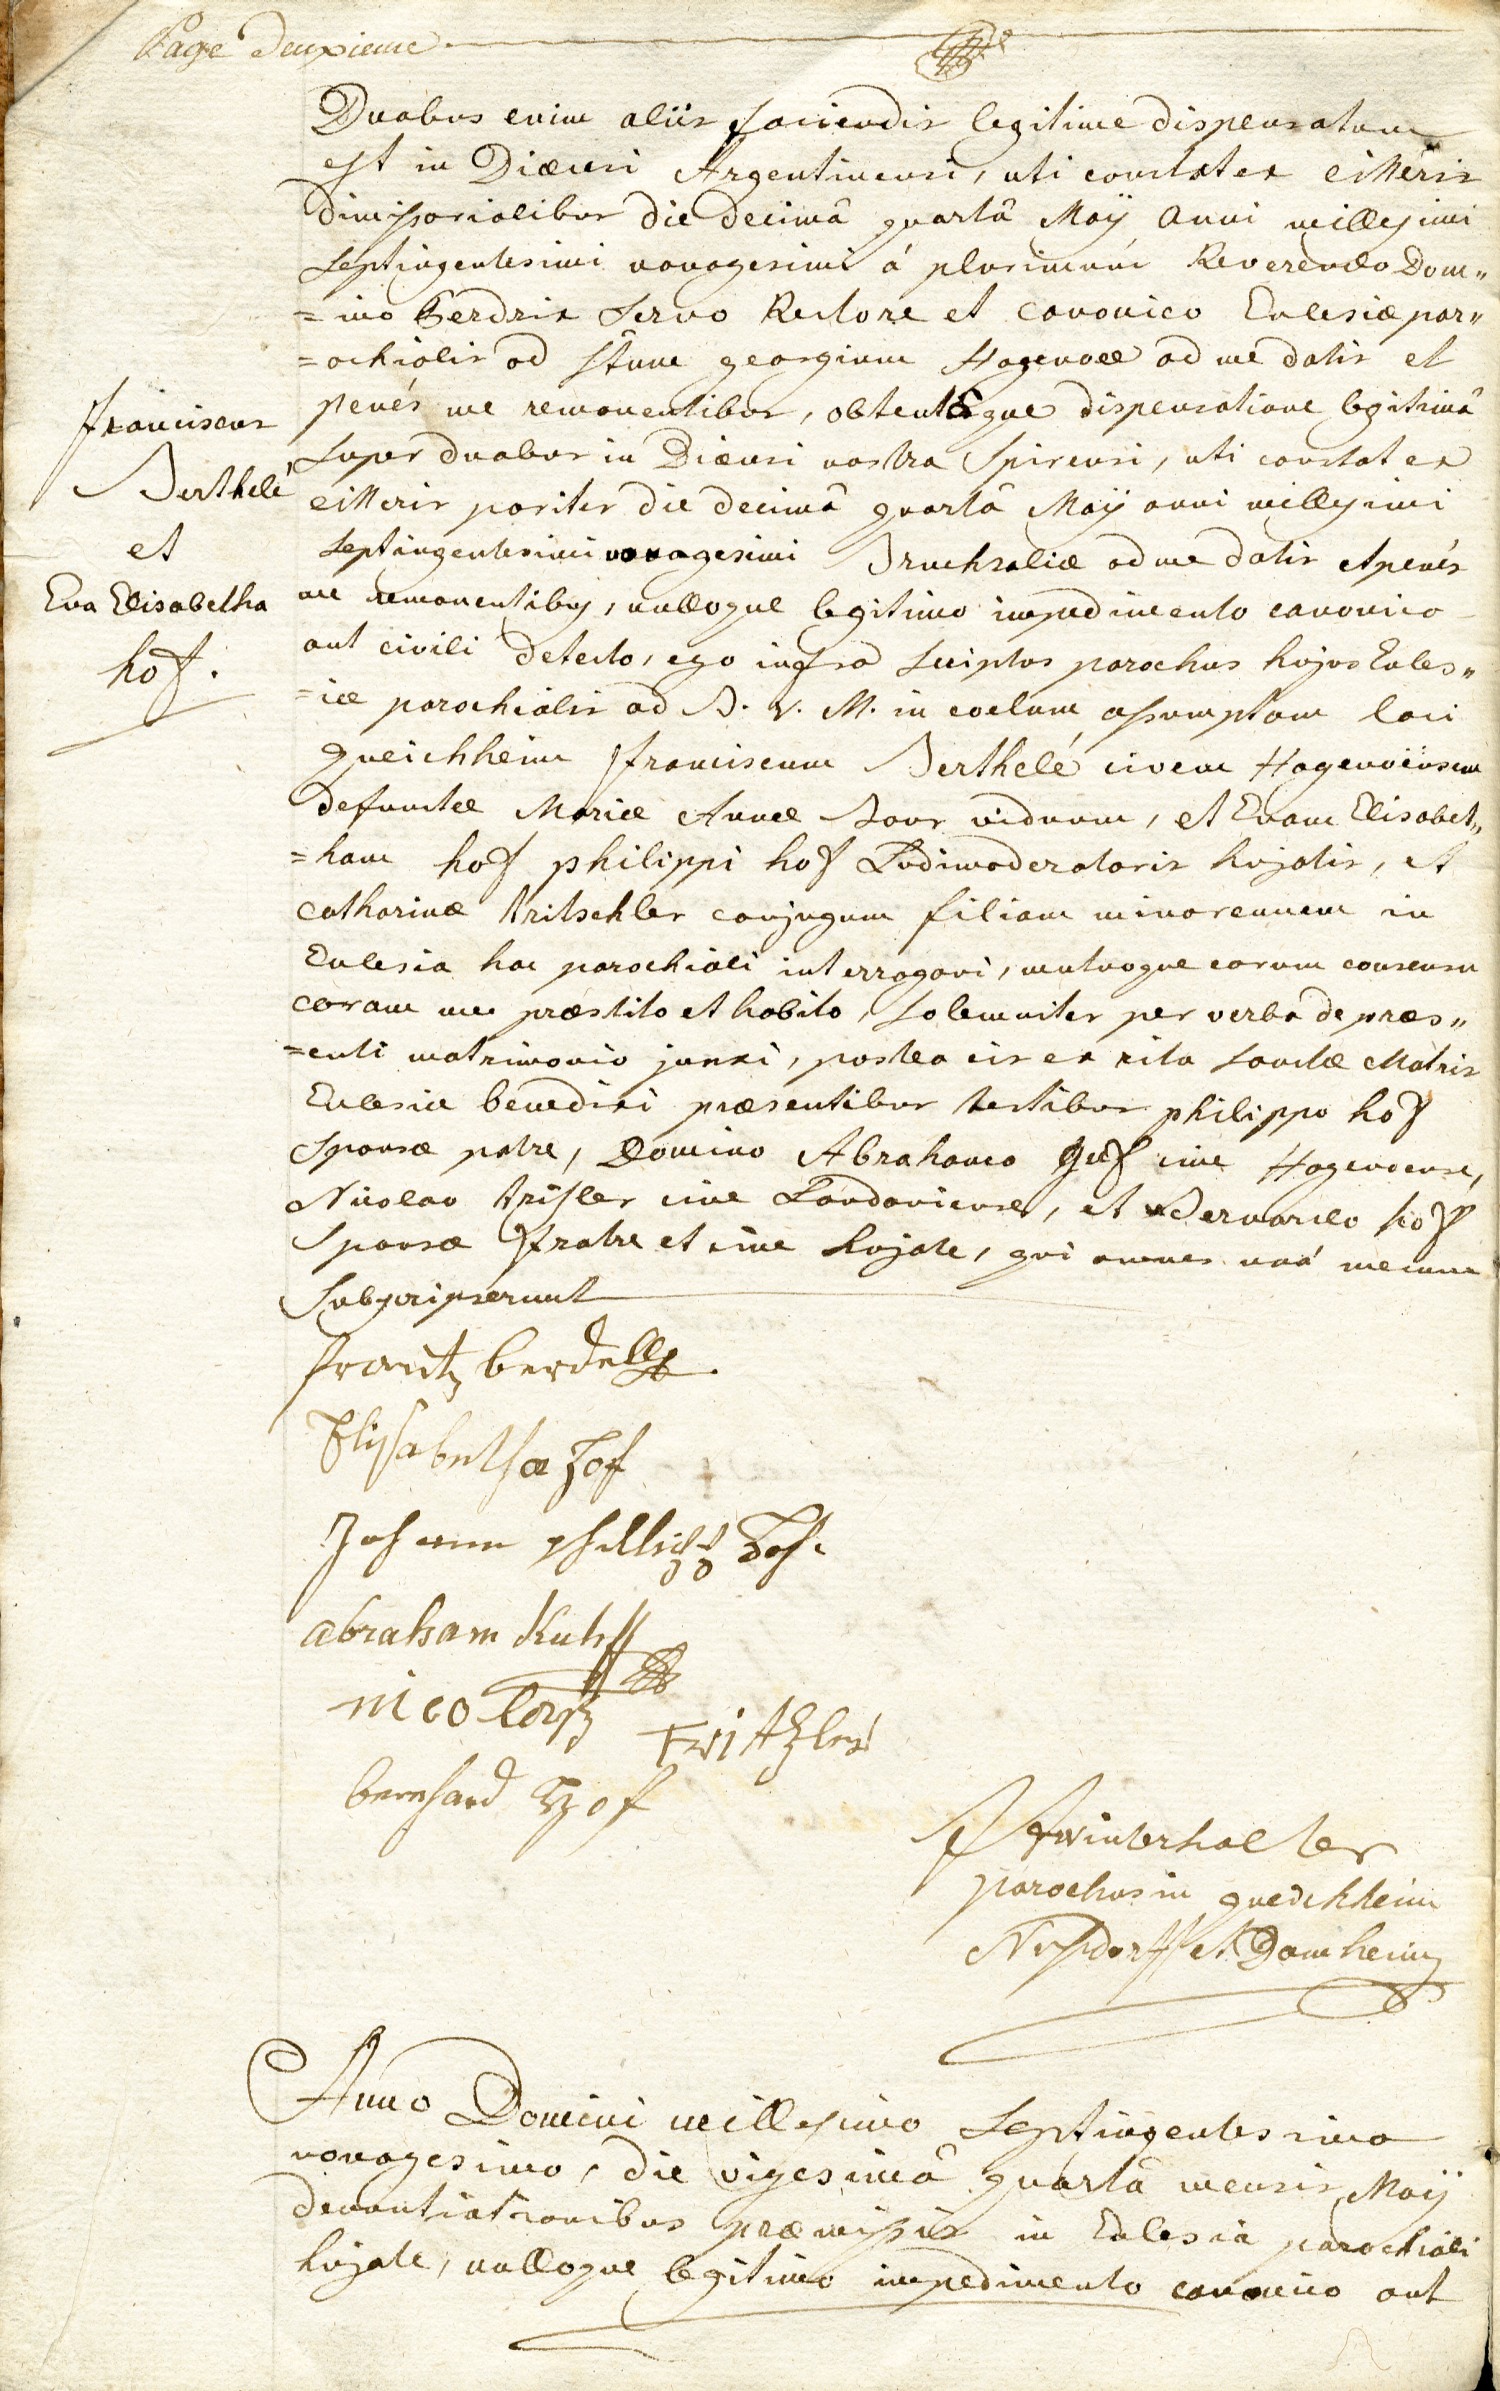 Page deuxieme
Duobus enim aliis faciendis legitime dispensatum
est in Diœcesi Argentinensi, uti constat ex litteris
dimissorialibus die decimâ quartâ Maÿ anni millesimi
septingentesimi nonagesimi á plurimúm Reverendo Dom„
=ino Gerdrix servo Rectore et canonico Ecclesiæ par„
=ochialis ad Stum georgium Hagenoæ ad me datis et
penés me remanentibus, obtentâque dispensatione legitimâ
super duabus in Diœcesi nostra Spirensi, uti constat ex
litteris pariter die decimâ quartâ Maÿ anni millesimi
septingentesimi nonagesimi Bruchsaliæ ad me datis et penés
me remanentibus, nulloque legitimo impedimento canonico
aut civili detecto, ego infra scriptus parochus hujus Eccles„
=iæ parochialis ad B. V. M. in coelum assumptam loci
queichheim franciscum Berthelé civem Hagenoënsem
defunctæ Mariæ Annæ Baur viduum, et Evam Elisabet„
=ham hoff philippi hoff Ludimoderatoris hujatis, et
catharinæ tritschler conjugum filiam minorennem in
Ecclesia hac parochiali interrogavi, mutuoque eorum consensu
coram me præstito et habito, solemniter per verba de præs„
=enti matrimonio junxi, postea eis ex ritu sanctæ Matris
Ecclesiæ benedixi præsentibus testibus philippo hoff
sponsæ patre, Domino Abrahamo Guf cive Hagenoense,
Nicolao trisler cive Landaviense, et Bernardo hoff
sponsæ fratre et cive hujate, qui omnes unà mecum
subscripserunt
franciscus
Berthelé
et
Eva Elisabetha
hoff.
frantz berdelle
Elisabetha Hof
Johann phillipp Hof.
abraham Kuhff
nicolaus Tritzler
bernhard Hof
winterhalter
parochus in queichheim
Nussdorff et Damheim
Anno Domini millesimo septingentesimo
nonagesimo, die vigesimâ quartâ mensis Maÿ
denuntiationibus præmissis in Ecclesia parochiali
hujate, nulloque legitimo impedimento canonico aut